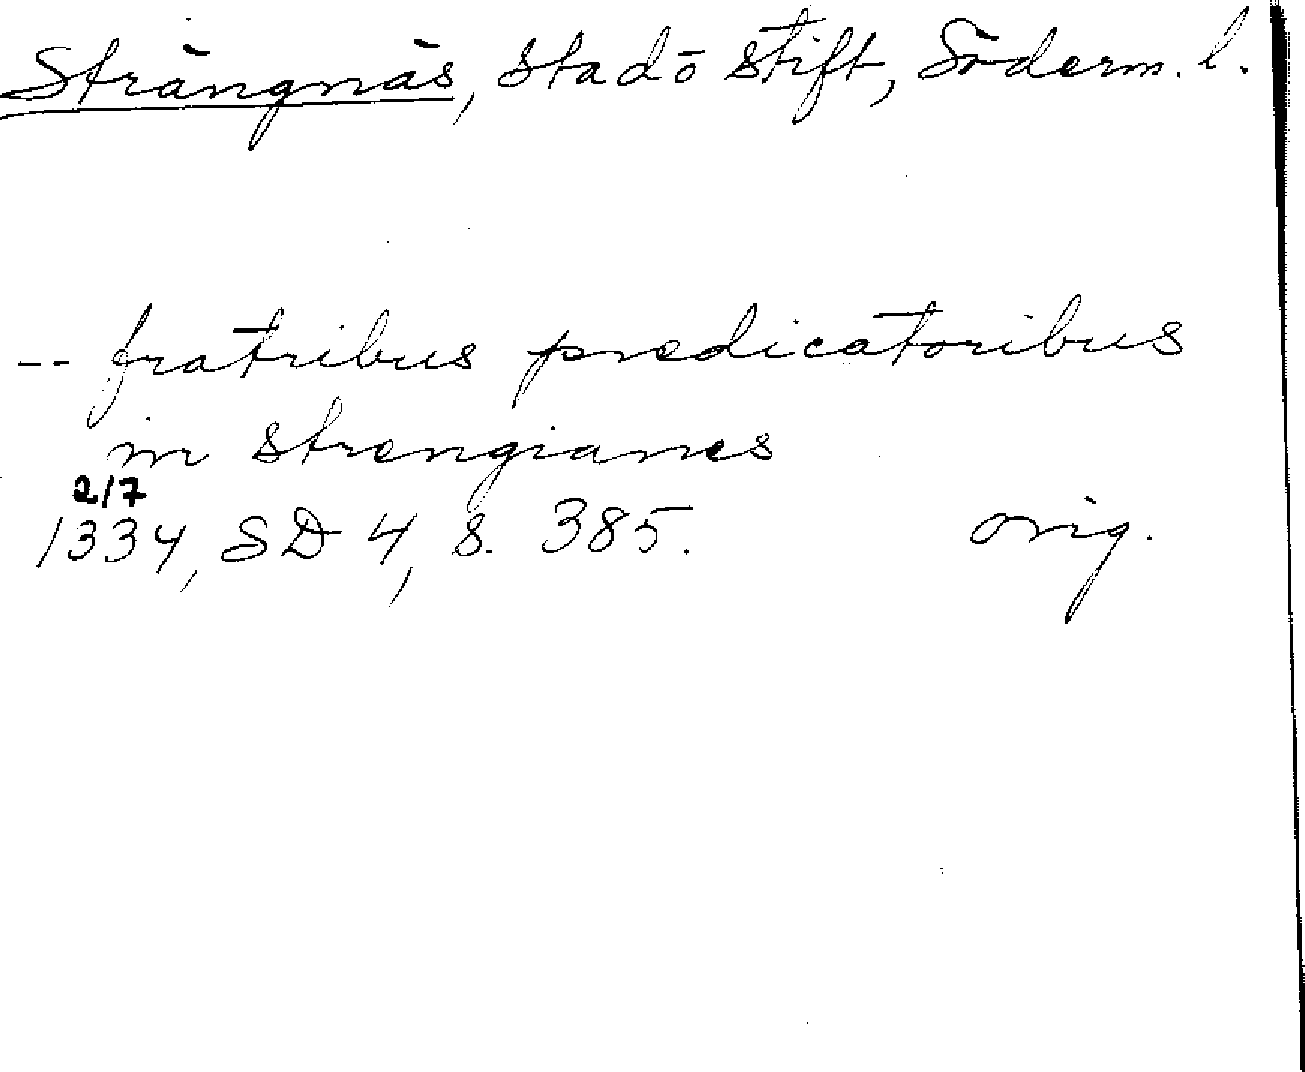 Strängnäs, stad o stift, Söderm. l.
-- fratribus predicatoribus
in strengianes
2/7
1334, SD 4, s. 385. orig.